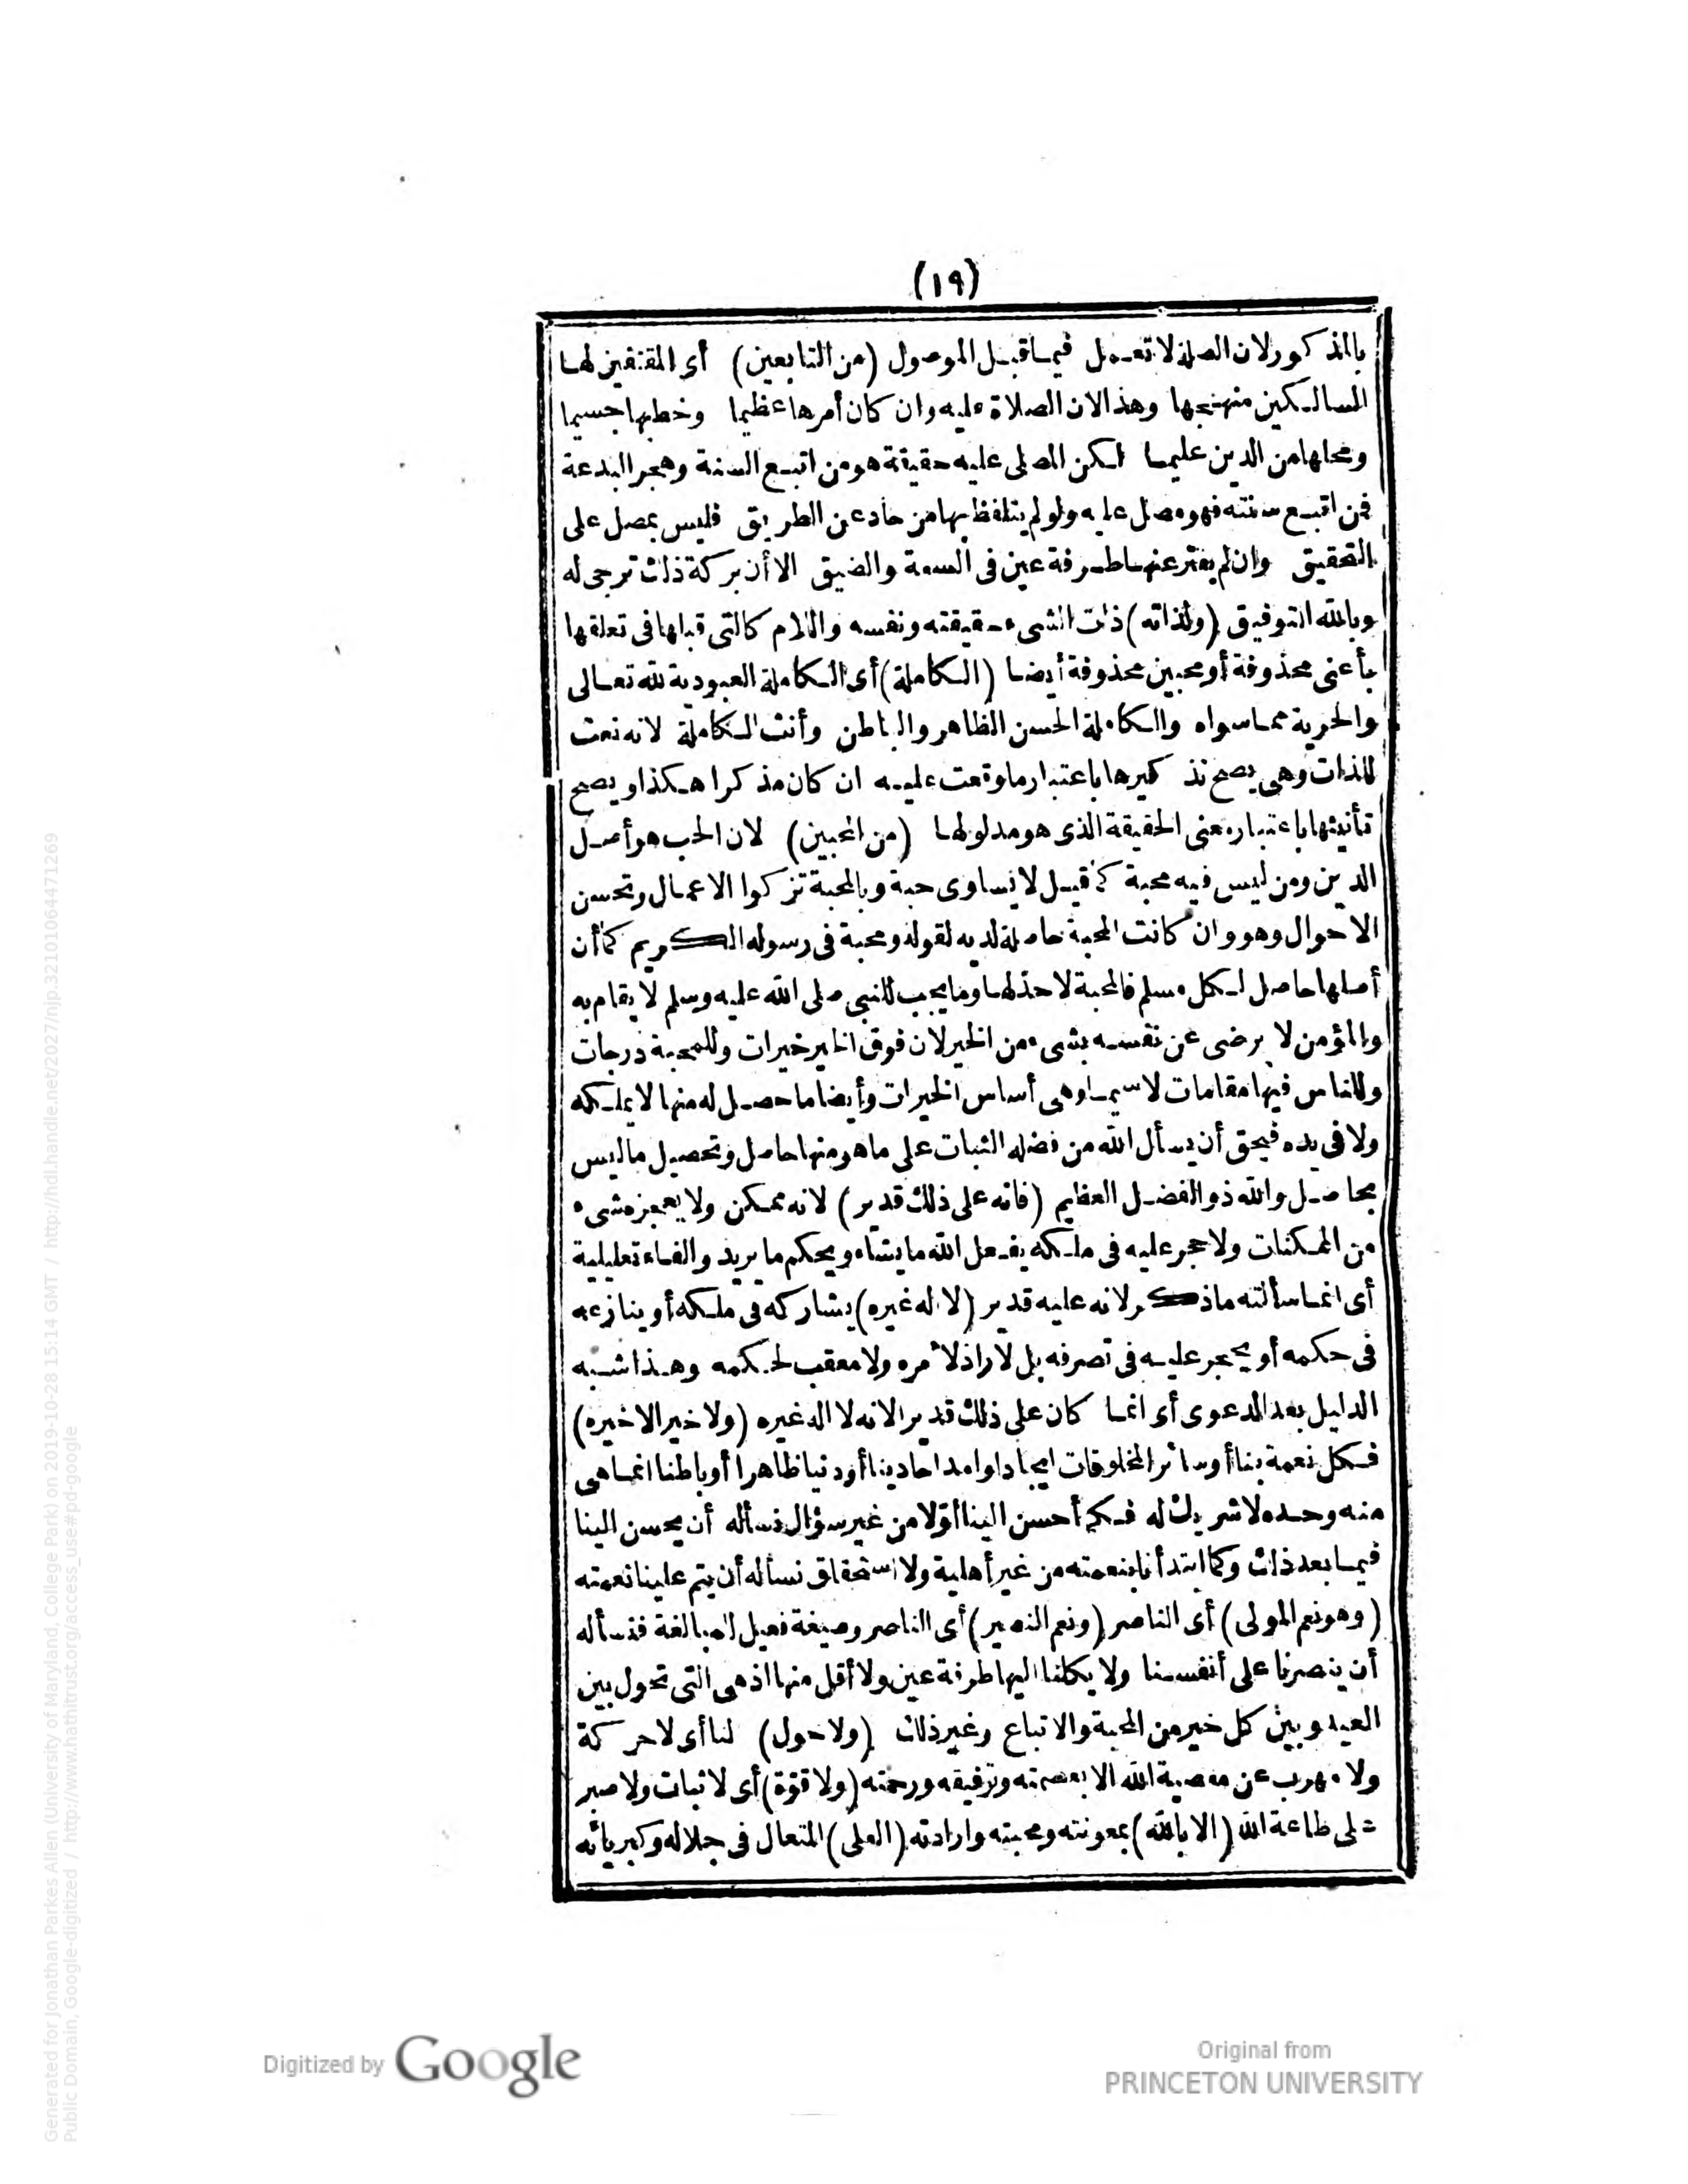 (١٩)
بالمذكور لان الصلة لا تعمل فيما قبل الموصول (من التابعين) أى المقتفين لها
السالكين منهجها وهذا لان الصلاة عليه وان كان أمرها عظيما وخطبها جسيما
ومحلها من الدين عليما لكن المصلى عليه حقيقة هو من اتبع السنة وهجر البدعة
فمن اتبع سنته فهو مصل عليه ولو لم يتلفظ بها من حاد عن الطريق فليس بمصل على
التحقيق وان لم يفتر عنها طرفة عين فى السعة والضيق الا أن بركة ذلك ترجى له
وبالله التوفيق (ولذاته) ذات الشىء حقيقته ونفسه واللام كالتى قبلها فى تعلقها
بأعنى محذوفة أو محبين محذوفة أيضا (الكاملة) أى الكاملة العبودية لله تعالى
والحرية مما سواه والكاملة الحسن الظاهر والباطن وأنث الكاملة لانه نعت
للذات وهى يصح تذكيرها باعتبار ما وقعت عليه ان كان مذكرا هكذا ويصح
تأنيثها باعتبار معنى الحقيقة الذى هو مدلولها (من المحبين) لان الحب هو أصل
الدين ومن ليس فيه محبة كما قيل لا يساوى حبة وبالمحبة تزكوا الاعمال وتحسن
الاحوال وهو وان كانت المحبة حاصلة لديه لقوله ومحبة فى رسوله الكريم كما أن
أصلها حاصل لكل مسلم فالمحبة لا حد لها وما يجب للنبى صلى الله عليه وسلم لا يقام به
والمؤمن لا يرضى عن نفسه بشىء من الخير لان فوق الخير خيرات وللمحبة درجات
وللناس فيها مقامات لا سيما وهى أساس الخيرات وأيضا ما حصل له منها لا يملكه
ولا فى يده فيحق أن يسأل الله من فضله الثبات على ما هو منها حاصل وتحصيل ما ليس
بحاصل والله ذو الفضل العظيم (فانه على ذلك قدير) لانه ممكن ولا يعجزه شىء
من الممكنات ولا حجر عليه فى ملكه يفعل الله ما يشاء ويحكم ما يريد والفاء تعليلية
أى انما سألته ما ذكر لانه عليه قدير (لا اله غيره) يشاركه فى ملكه أو ينازعه
فى حكمه أو يحجر عليه فى تصرفه بل لا راد لأمره ولا معقب لحكمه وهذا شبه
الدليل بعد الدعوى أى انما كان على ذلك قديرا لانه لا اله غيره (ولا خير الا خيره)
فكل نعمة بنا أو سائر المخلوقات ايجادا وامدادا دينا أو دنيا ظاهرا أو باطنا انما هى
منه وحده لا شريك له فكم أحسن الينا أوّلا من غير سؤال نسأله أن يحسن الينا
فيما بعد ذلك وكما ابتدأنا بنعمته من غير أهلية ولا استحقاق نسأله أن يتم علينا نعمته
(وهو نعم المولى) أى الناصر (ونعم النصير) أى الناصر وصيغة فعيل للمبالغة فنسأله
أن ينصرنا على أنفسنا ولا يكلنا اليها طرفة عين ولا أقل منها اذ هى التى تحول بين
العبد وبين كل خير من المحبة والاتباع وغير ذلك (ولا حول) لنا أى لا حركة
ولا مهرب عن معصية الله الا بعصمته وتوفيقه ورحمته (ولا قوّة) أى لا ثبات ولا صبر
على طاعة الله (الا بالله) بمعونته ومحبته وارادته (العلى) المتعال فى جلاله وكبريائه
Digitized by Google
Original from
PRINCETON UNIVERSITY
Generated for Jonathan Parkes Allen (University of Maryland, College Park) on 2019-10-28 15:14 GMT / http://hdl.handle.net/2027/njp.32101064471269
Public Domain, Google-digitized / http://www.hathitrust.org/access_use#pd-google